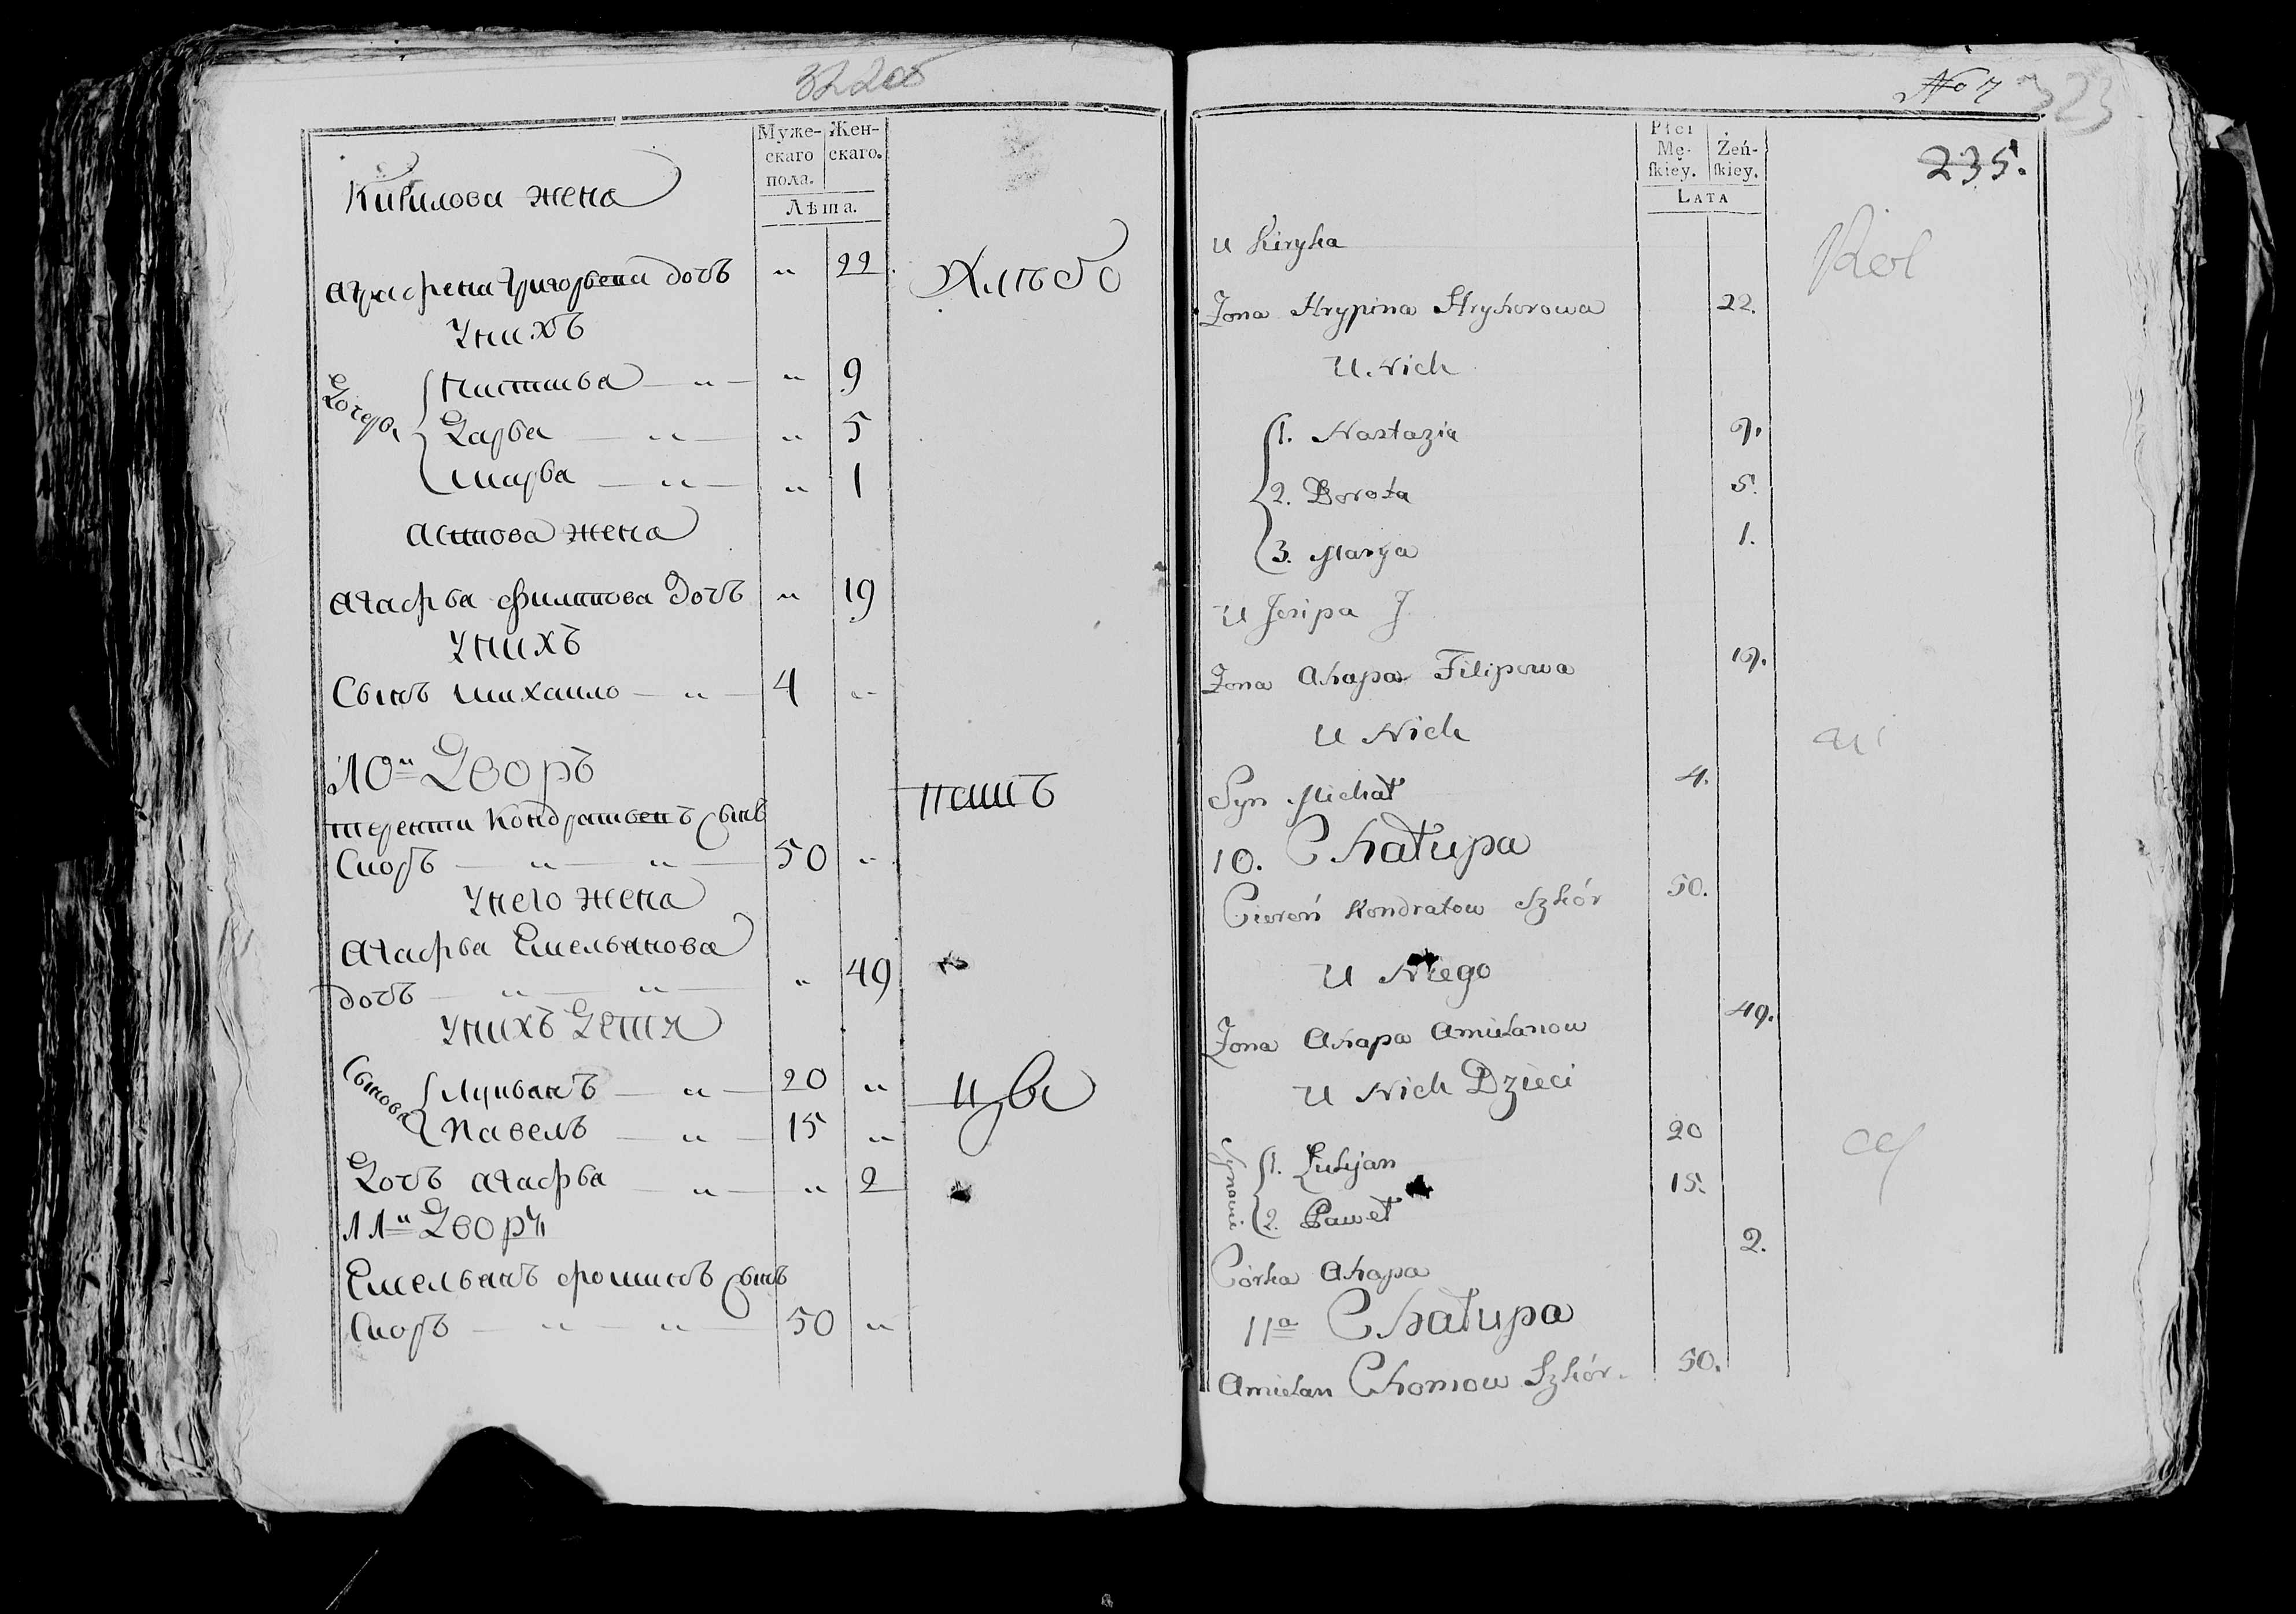 322об
Муже-
скаго
пола.
Жен-
скаго.
Лѣта.
Кирилова жена
Аграфена Григорьева дочь " 22
Хлѣбо
У нихъ
Дочери
Настасья — " — " 9
Дарья — " — " 5
Марья — " — " 1
Асипова жена
Агафья Филипова дочь " 19
У нихъ
Сынъ Михайло — " — 4 "
10й Дворъ
пашъ
Терентий Кондратьевъ сынъ
Скоръ — " — " — 50 "
У него жена
Агафья Емельянова
дочь — " — " — " 49
У нихъ Дети
Сыновья
Лукьянъ — " — 20 "
Павелъ — " — 15 "
Дочь Агафья — " — " 2
11й Дворъ
Емельянъ Фоминъ сынъ
Скоръ — " — " — 50 "
No 7
323
Płci
Mę-
ſkiey.
Żeń-
ſkiey.
Lata
235.
U Kiryła
Żona Hrypina Hryhorowa 22.
U Nich
1. Nastazia 9.
2. Dorota 5.
3. Marya 1.
U Jesipa J.
Żona Ahapa Filipowa 19.
U Nich
Syn Michał 4.
10. Chałupa
Cieren Kondratow Szkór 50.
U Niego
Żona Ahapa Amielanow 49.
U Nich Dzieci
Synowie
1. Łukjan 20
2. Paweł 15.
Córka Ahapa 2.
11a Chałupa
Amielan Chomow Szkór. 50.